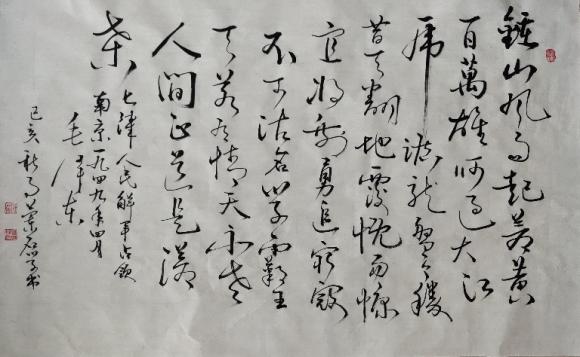 鍾山風雨起蒼黃
百萬雄師過大江
虎踞龍盤今勝
昔天翻地覆慨而慷
宜將剩勇追窮寇
不可沽名學霸王
天若有情天亦老
人間正道是滄
桑
七律 人民解軍占領
南京一九四九年四月
毛澤東
己亥秋月